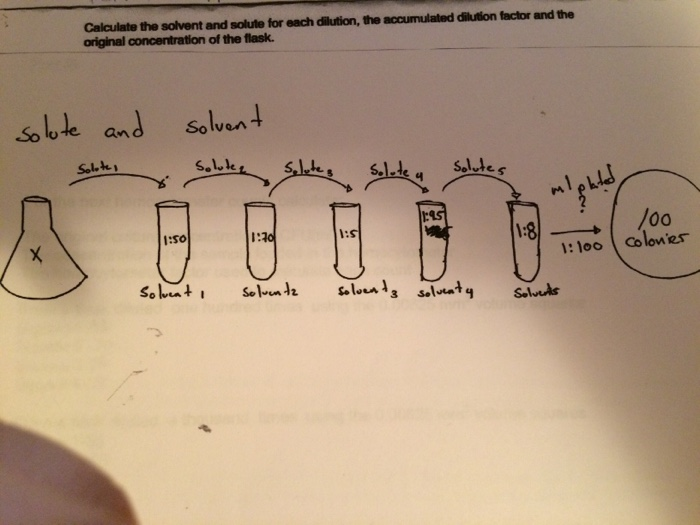 Calculate the solvent and solute for each dilution, the accumulated dilution factor and the
original concentration of the flask.
Solute and solvent
Solute1 Solute2 Solute3 Solute4 Solute5 ml plated
?
X 1:50 1:70 1:5 1:25 1:8 1:100 100
colonies
Solvent1 Solvent2 Solvent3 Solvent4 Solvent5